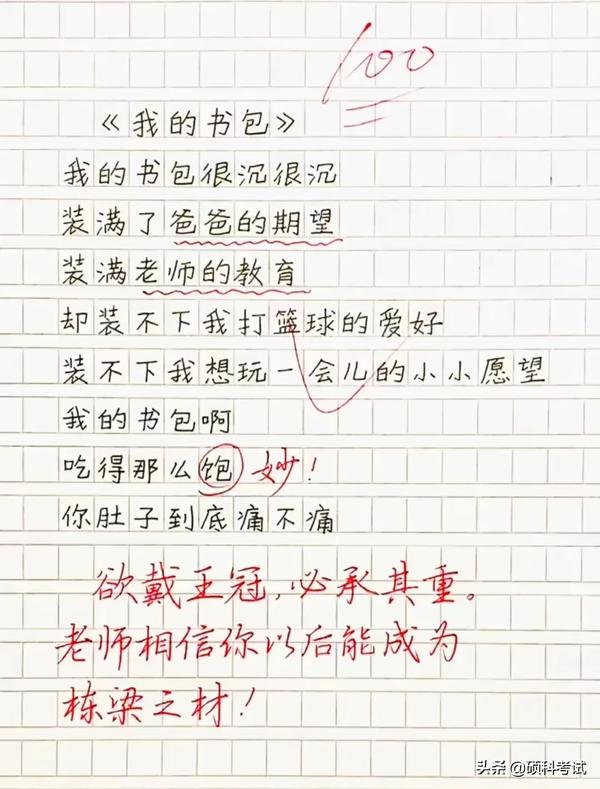 100
《我的书包》
我的书包很沉很沉
装满了爸爸的期望
装满老师的教育
却装不下我打篮球的爱好
装不下我想玩一会儿的小小愿望
我的书包啊
吃得那么饱 妙!
你肚子到底痛不痛
欲戴王冠,必承其重。
老师相信你以后能成为
栋梁之材!
头条 @硕科考试